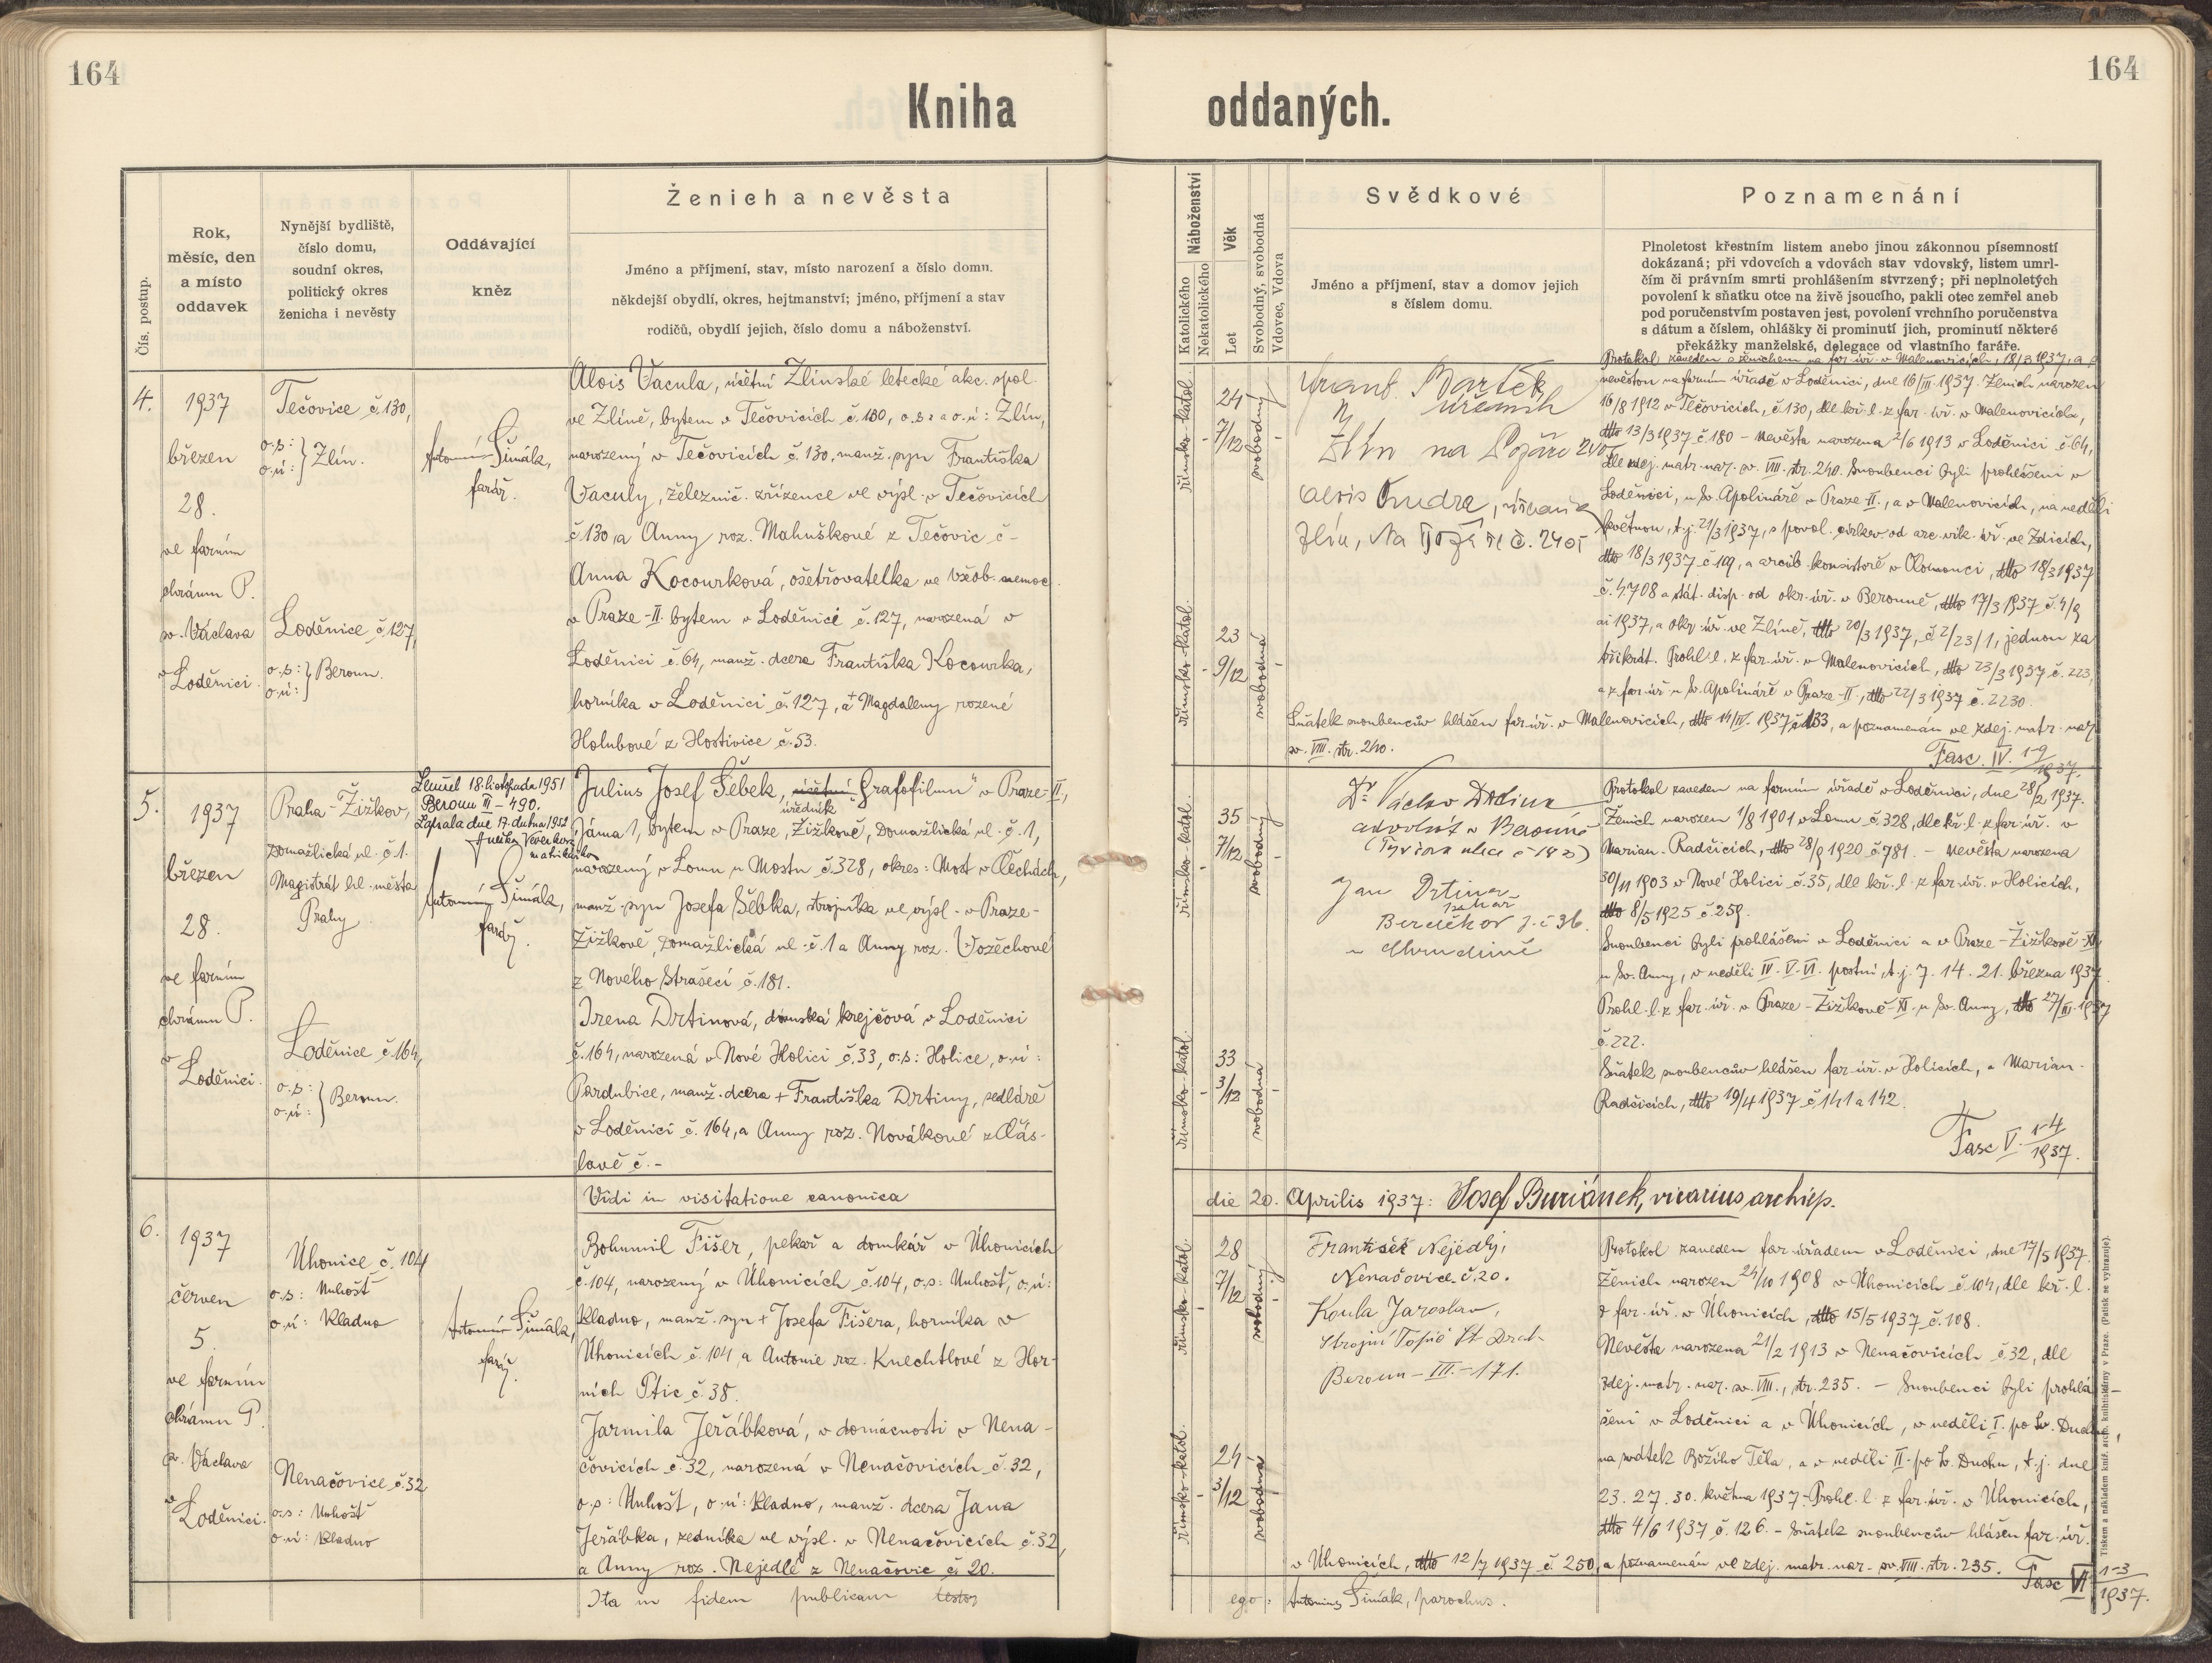 164
164
Kniha oddaných.
Čís. postup.
Rok,
měsíc, den
a místo
oddavek
Nynější bydliště,
číslo domu,
soudní okres,
politický okres
ženicha i nevěsty
Oddávající
kněz
Ženich a nevěsta
Jméno a příjmení, stav, místo narození a číslo domu.
někdejší obydlí, okres, hejtmanství; jméno, příjmení a stav
rodičů, obydlí jejich, číslo domu a náboženství.
Náboženství
Katolického
Nekatolického
Věk
Let
Svobodný, svobodná
Vdovec, Vdova
Svědkové
Jméno a příjmení, stav a domov jejich
s číslem domu.
Poznamenání
Plnoletost křestním listem anebo jinou zákonnou písemností
dokázaná; při vdovcích a vdovách stav vdovský, listem umrl-
čím či právním smrti prohlášením stvrzený; při neplnoletých
povolení k sňatku otce na živě jsoucího, pakli otec zemřel aneb
pod poručenstvím postaven jest, povolení vrchního poručenstva
s dátum a číslem, ohlášky či prominutí jich, prominutí některé
překážky manželské, delegace od vlastního faráře.
4.
1937
březen
28.
ve farním
chrámu P.
sv. Václava
v
Loděnici.
Tečovice č. 130,
o.s:
o.ú: } Zlín.
Loděnice č 127,
o.s:
o.ú: } Beroun.
Antonín Šimák,
farář.
Alois Vacula, účetní Zlínské letecké akc. spol.
ve Zlíně, bytem v Tečovicích č. 130, o.s: a o.ú: Zlín,
narozený v Tečovicích č. 130, manž. syn Františka
Vaculy, železnič. zřízence ve výsl. v Tečovicích
č 130, a Anny roz. Mahuškové z Tečovic č -
Anna Kocourková, ošetřovatelka ve všeob. nemoc.
v Praze-II. bytem v Loděnici č. 127, narozená v
Loděnici č. 64, manž. dcera Františka Kocourka,
horníka v Loděnici č. 127, a + Magdaleny rozené
Holubové z Hostivice č. 53.
římsko-katol.
24
7/12
svobodný
římsko-katol.
23
9/12
svobodná
Frant. Bartek
úředník
Zlín na Požáře
Alois Kudra,
Zlín, Na Požáře č. 2405
Protokol zaveden s ženichem na far. úř. v Malenovicích, 18/3 1937, a s
nevěstou na farním úřadě v Loděnici, dne 16/III. 1937. Ženich narozen
16/8 1912 v Tečovicích, č. 130, dle kř. l. z far. úř. v Malenovicích,
dtto 13/3 1937 č 180 - Nevěsta narozena 2/6 1913 v Loděnici č. 64,
dle zdej. matr. nar. sv. VIII. str. 240. Snoubenci byli prohlášeni v
Loděnici, u Sv. Apolináře v Praze-II., a v Malenovicích, na neděli
květnou, t.j. 21/3 1937, s povol. církev. od arc. vik. úř. ve Zdicích,
dtto 18/3 1937 č 109, a arcib. konsistoře v Olomouci, dtto 18/3 1937
č. 4708 a stát. disp. od okr. úř. v Berouně, dtto 17/3 1937 č. 4/9
ai 1937, a okr. úř. ve Zlíně, dtto 20/3 1937, č 2/23/1, jednou za
třikrát. Prohl. l. z far. úř. v Malenovicích, dtto 23/3 1937 č. 223,
a z far. úř. u Sv. Apolináře v Praze-II, dtto 22/3 1937 č. 2230.
Sňatek snoubenců hlášen far. úř. v Malenovicích, dtto 14/IV. 1937 č 133, a poznamenán ve zdej. matr. nar.
sv. VIII. str. 240.
Fasc. IV. 1-9/1937.
5.
1937
březen
28.
ve farním
chrámu P.
v
Loděnici.
Praha-Žižkov,
Domažlická ul. č. 1.
Magistrát hl. města
Prahy
Loděnice č. 164,
o.s:
o.ú: } Beroun.
Zemřel 18. listopadu 1951
Beroun III - 490.
Zapsala dne 17. dubna 1952
matrikářka
Antonín Šimák,
farář.
Julius Josef Šebek, účetní „Grafofilmu" v Praze-II,
úředník
Jáma 1, bytem v Praze, Žižkově, Domažlická ul. č. 1,
narozený v Lomu u Mostu č. 328, okres: Most v Čechách,
manž. syn Josefa Šebka, strojníka ve výsl. v Praze-
Žižkově, Domažlická ul. č. 1 a Anny roz. Vozěchové
z Nového Strašecí č. 181.
Irena Drtinová, dámská krejčová v Loděnici
č. 164, narozená v Nové Holici č. 33, o.s: Holice, o.ú:
Pardubice, manž. dcera + Františka Drtiny, sedláře
v Loděnici č. 164, a Anny roz. Novákové z Čás-
lavě č. -
římsko-katol.
35
7/12
svobodný
římsko-katol.
33
3/12
svobodná
Dr Václav Drtina
advokát v Berouně
(Tyršova ulice č 183)
Jan Drtina
Berčkov j. č 36.
u Chrudimě
Protokol zaveden na farním úřadě v Loděnici, dne 28/2 1937.
Ženich narozen 1/8 1901 v Lomu č. 328, dle kř. l. z far. úř. v
Marian. Radčicích, dtto 28/9 1920 č. 781. - Nevěsta narozena
30/11 1903 v Nové Holici č. 35, dle kř. l. z far. úř. v Holicích,
dtto 8/5 1925 č 259.
Snoubenci byli prohlášeni v Loděnici a v Praze-Žižkově-XI
u Sv. Anny, v neděli IV. V. VI. postní, t.j. 7. 14. 21. března 1937.
Prohl. l. z far. úř. v Praze-Žižkově-XI u Sv. Anny, dtto 27/III. 1937
č. 222.
Sňatek snoubenců hlášen far. úř. v Holicích, v Marian.
Radčicích, dtto 19/4 1937 č 141 a 142.
Fasc V. 1-4/1937.
Vidi in visitatione canonica
die 20. Aprilis 1937: Josef Buriánek, vicarius archiep.
6.
1937
červen
5.
ve farním
chrámu P.
sv. Václava
v
Loděnici.
Úhonice č. 104
o.s: Unhošť
o.ú: Kladno
Nenačovice č. 32
o.s: Unhošť
o.ú: Kladno
Antonín Šimák,
farář.
Bohumil Fišer, pekař a domkář v Úhonicích
č. 104, narozený v Úhonicích č. 104, o.s: Unhošť, o.ú:
Kladno, manž. syn + Josefa Fišera, horníka v
Úhonicích č. 104, a Antonie roz. Knechtlové z Hor-
ních Ptic č. 38.
Jarmila Jeřábková, v domácnosti v Nena-
čovicích č. 32, narozená v Nenačovicích č. 32,
o.s: Unhošť, o.ú: Kladno, manž. dcera Jana
Jeřábka, zedníka ve výsl. v Nenačovicích č. 32,
a Anny roz. Nejedlé z Nenačovic č. 20.
římsko-katol.
28
7/12
svobodný
římsko-katol.
24
3/12
svobodná
František Nejedlý,
Nenačovice č. 20.
Koula Jaroslav,
Strojní Topič St. Drah.
Beroun-III.-171.
Protokol zaveden far. úřadem v Loděnici, dne 17/5 1937.
Ženich narozen 24/10 1908 v Úhonicích č. 104, dle kř. l.
z far. úř. v Úhonicích, dtto 15/5 1937 č. 108.
Nevěsta narozena 21/2 1913 v Nenačovicích č. 32, dle
zdej. matr. nar. sv. VIII., str. 235. - Snoubenci byli prohlá-
šeni v Loděnici a v Úhonicích, v neděli I. po Sv. Duchu,
na svátek Božího Těla, a v neděli II. po Sv. Duchu, t.j. dne
23. 27. 30. května 1937. Prohl. l. z far. úř. v Úhonicích,
dtto 4/6 1937 č. 126. - Sňatek snoubenců hlášen far. úř.
v Úhonicích, dtto 12/7 1937 č. 250, a poznamenán ve zdej. matr. nar. sv. VIII. str. 235.
Fasc VI 1-3/1937.
Ita in fidem publicam testor
ego: Antonius Šimák, parochus.
Tiskem a nákladem kníž. arcib. knihtiskárny v Praze. (Patisk se vyhrazuje).